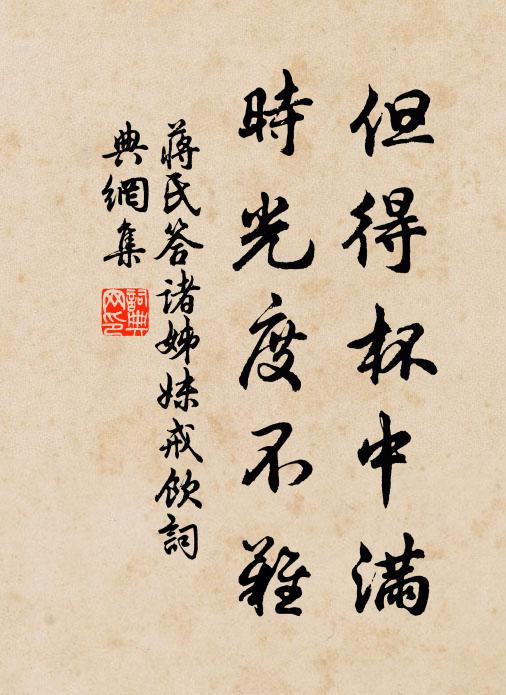 但得杯中滿
時光度不難
蔣氏答諸姊妹戒飲詞
典網集
詞典网印